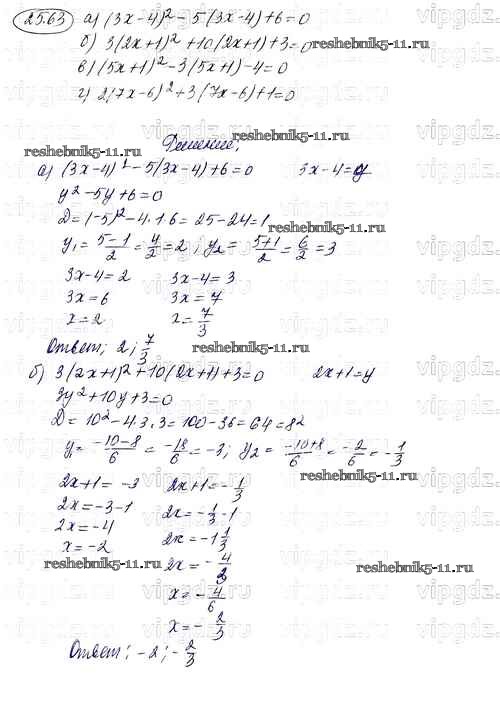 25.63 а) (3x-4)² - 5(3x-4)+6=0
б) 3(2x+1)² +10(2x+1)+3=0
reshebnik5-11.ru
в) (5x+1)² -3(5x+1)-4=0
г) 2(7x-6)² +3(7x-6)+1=0
reshebnik5-11.ru
Решение;
reshebnik5-11.ru
а) (3x-4)² -5(3x-4)+6=0 3x-4=y
y² -5y+6=0
D=(-5)² -4·1·6=25-24=1
reshebnik5-11.ru
y₁=(5-1)/2=4/2=2; y₂=(5+1)/2=6/2=3
3x-4=2 3x-4=3
3x=6 3x=7
x=2 x=7/3
Ответ; 2; 7/3
reshebnik5-11.ru
б) 3(2x+1)² +10(2x+1)+3=0 2x+1=y
3y² +10y+3=0
D=10² -4·3·3=100-36=64=8²
y₁=(-10-8)/6=-18/6=-3; y₂=(-10+8)/6=-2/6=-1/3
reshebnik5-11.ru
2x+1=-3 2x+1=-1/3
2x=-3-1 2x=-1/3-1
2x=-4 2x=-1 1/3
x=-2 2x=-4/3
reshebnik5-11.ru reshebnik5-11.ru
x=-4/6
x=-2/3
Ответ; -2; -2/3